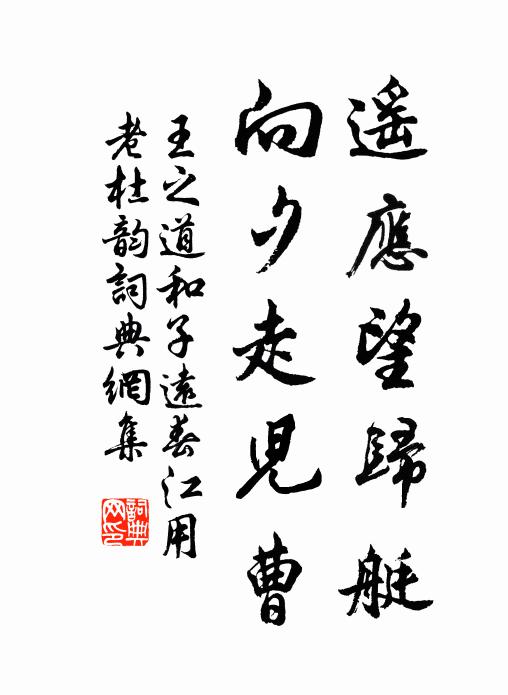 遥應望歸艇
向夕走兒曹
王之道和子遠春江用
老杜韵詞典網集
詞典
网印